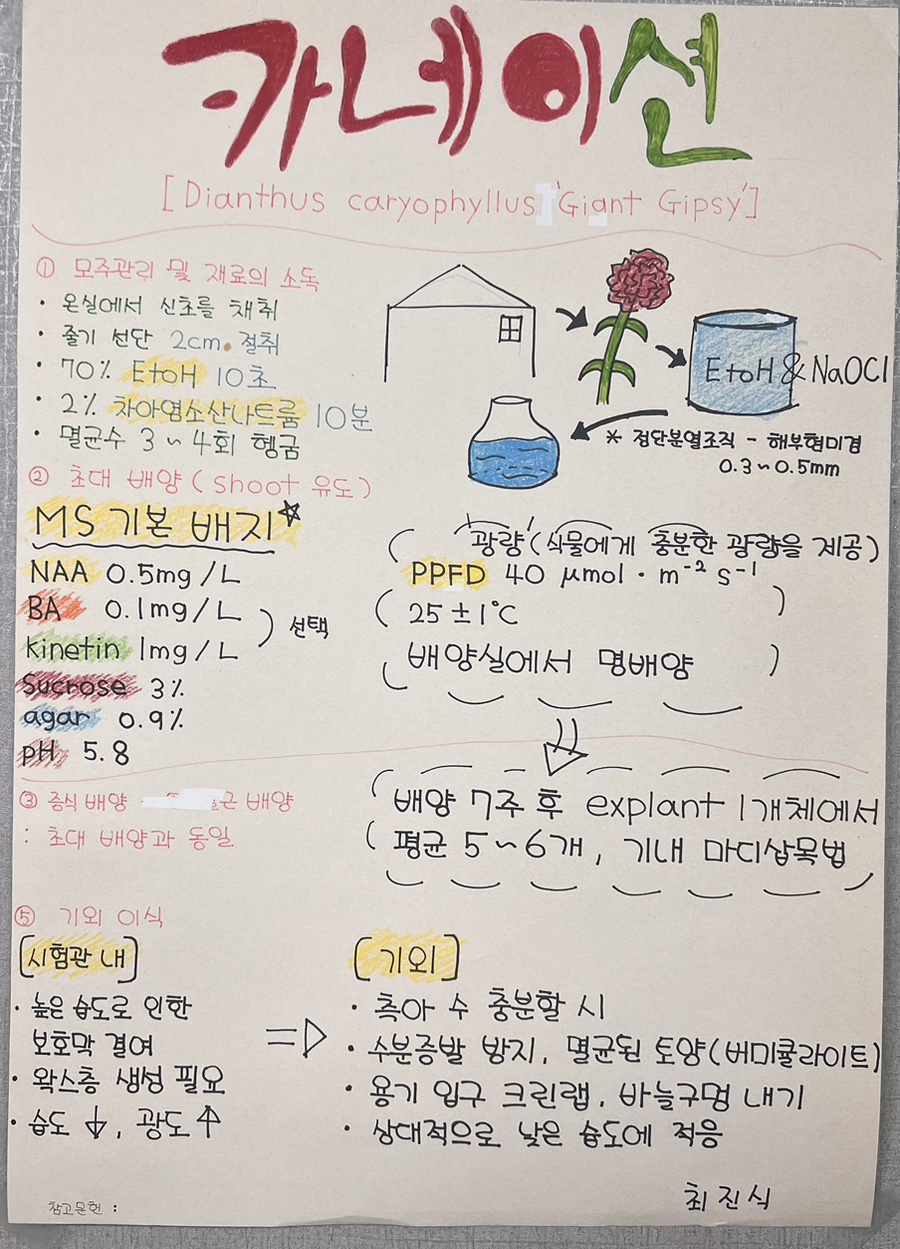 카네이션
[Dianthus caryophyllus 'Giant Gipsy']
① 모주관리 및 재료의 소독
· 온실에서 신초를 채취
· 줄기 선단 2cm. 절취
· 70% EtOH 10초
· 2% 차아염소산나트륨 10분
· 멸균수 3~4회 헹굼
EtOH & NaOCl
* 정단분열조직 - 해부현미경
0.3~0.5mm
② 초대 배양 (shoot 유도)
MS 기본 배지☆
NAA 0.5mg/L
BA 0.1mg/L
kinetin 1mg/L ) 선택
Sucrose 3%
agar 0.9%
pH 5.8
'광량' (식물에게 충분한 광량을 제공)
PPFD 40 μmol · m⁻² s⁻¹
25 ± 1℃
배양실에서 명배양
③ 증식 배양 근 배양
: 초대 배양과 동일
배양 7주 후 explant 1개체에서
평균 5~6개, 기내 마디삽목법
⑤ 기외 이식
[시험관 내]
· 높은 습도로 인한
보호막 결여
· 왁스층 생성 필요
· 습도 ↓, 광도 ↑
⇒
[기외]
· 측아 수 충분할 시
· 수분증발 방지, 멸균된 토양(버미큘라이트)
· 용기 입구 크린랩, 바늘구멍 내기
· 상대적으로 낮은 습도에 적응
최진식
참고문헌 :